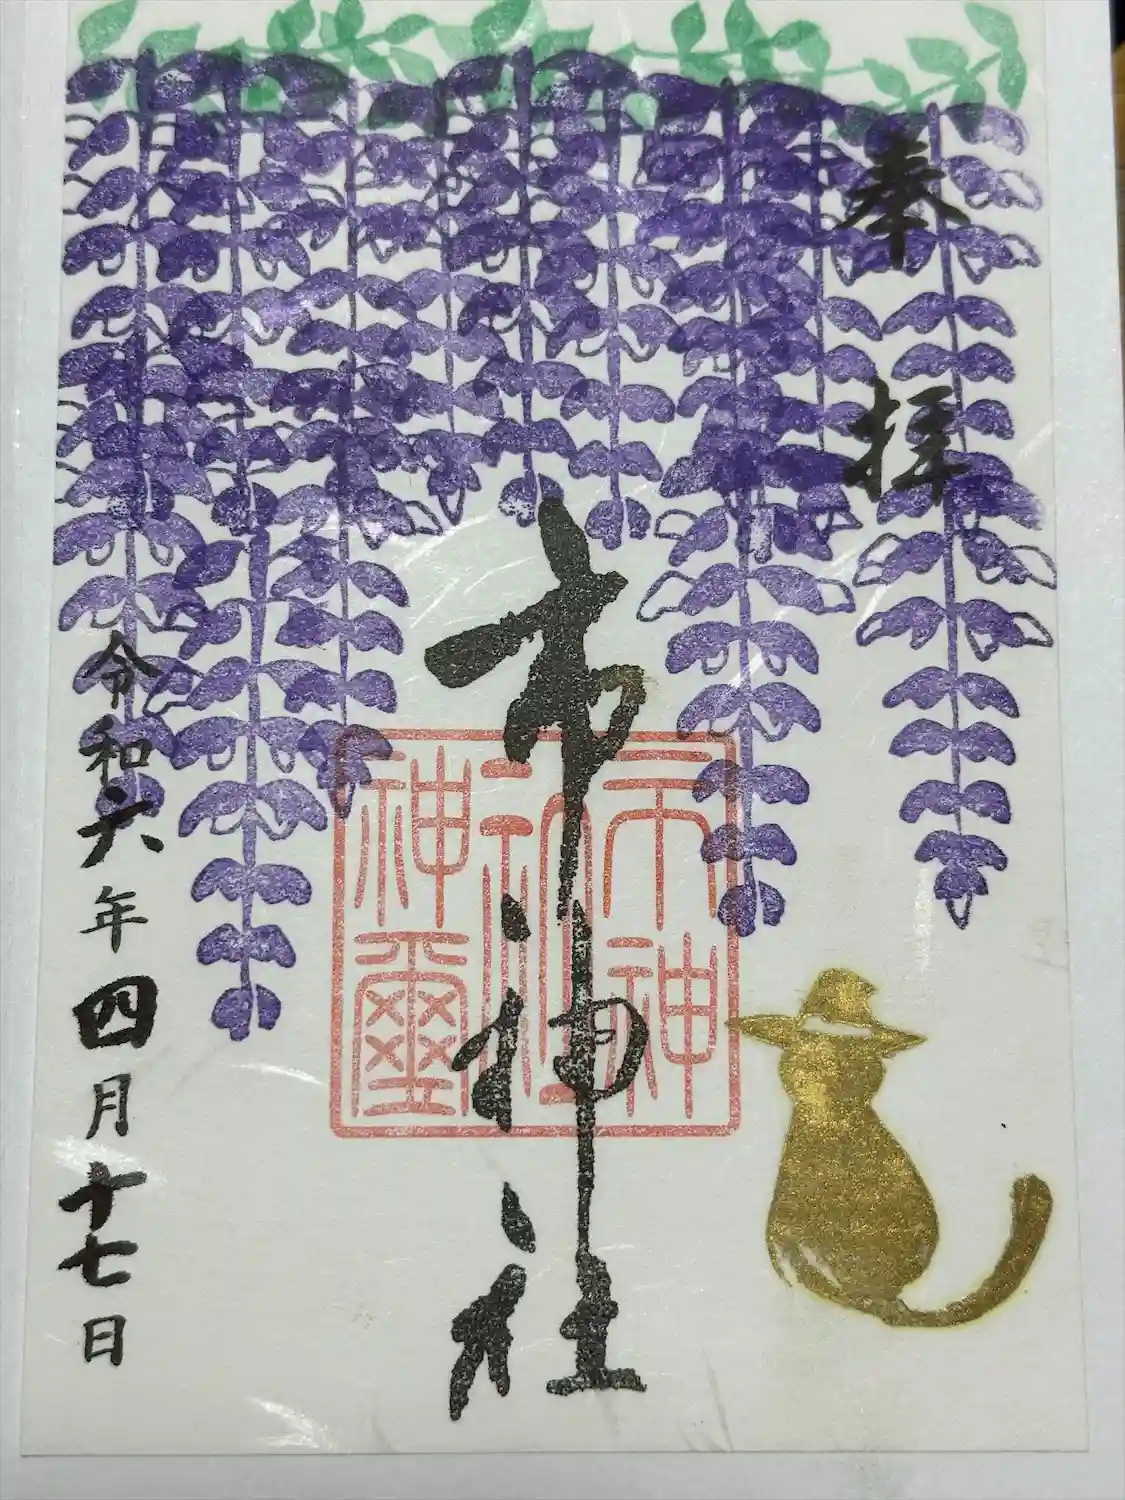 奉拝
市神社
市神神社神璽
令和六年四月十七日